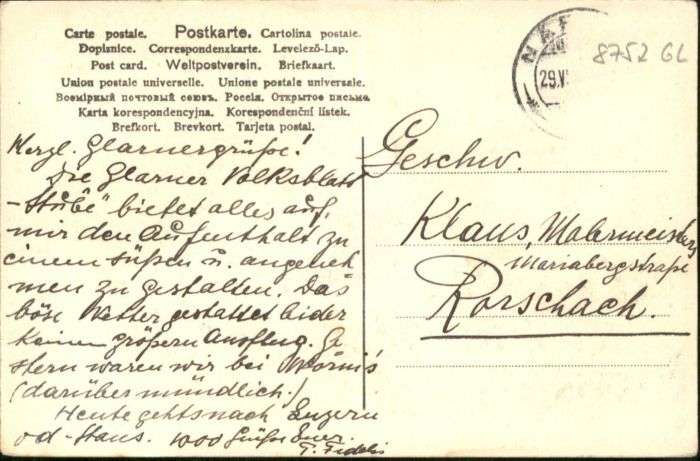 Carte postale. Postkarte. Cartolina postale.
Dopisnice. Correspondenzkarte. Levelező-Lap.
Post card. Weltpostverein. Briefkaart.
Union postale universelle. Unione postale universale.
Всемірный почтовый союзъ. Россія. Открытое письмо.
Karta korespondencyjna. Korespondenční listek.
Brefkort. Brevkort. Tarjeta postal.
8752 GL
29.V
Herzl. Glarnergrüße!
Die Glarner Volksblatt
-Stube" bietet alles auf,
mir den Aufenthalt zu
einem süßen u. angeneh
men zu gestalten. Das
böse Wetter gestattet leider
keinen größern Ausflug. Ge
stern waren wir bei
(darüber mündlich.)
Heute gehts nach Luzern
od - Stans. 1000 Grüße Euer.
P. Fidelis
Geschw.
Klaus, Malermeisters
Mariabergstraße
Rorschach.